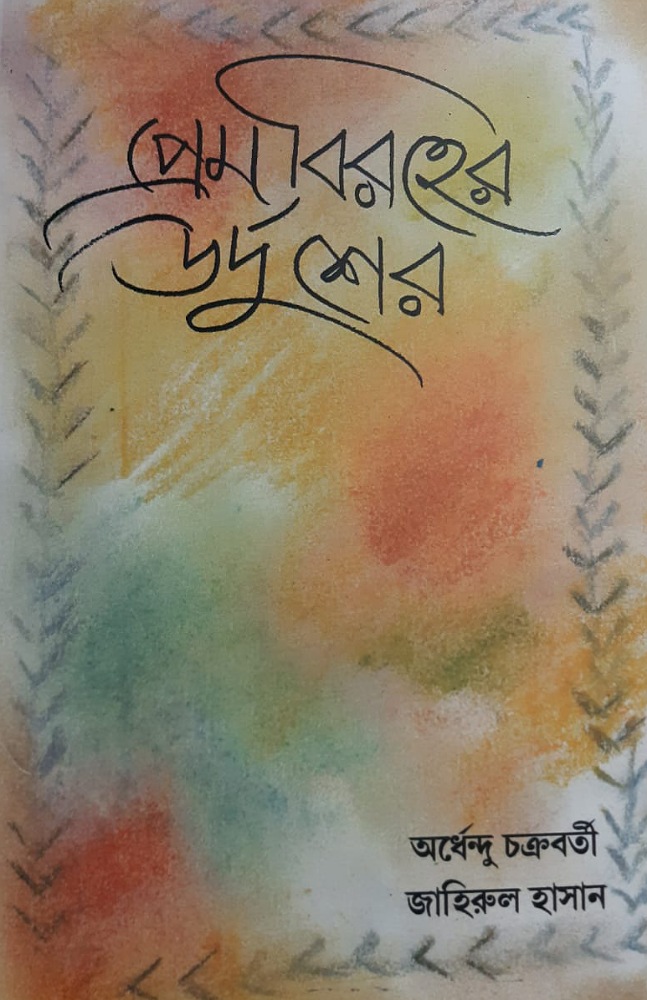 প্রেমবিরহের
উর্দু শের
অর্ধেন্দু চক্রবর্তী
জাহিরুল হাসান